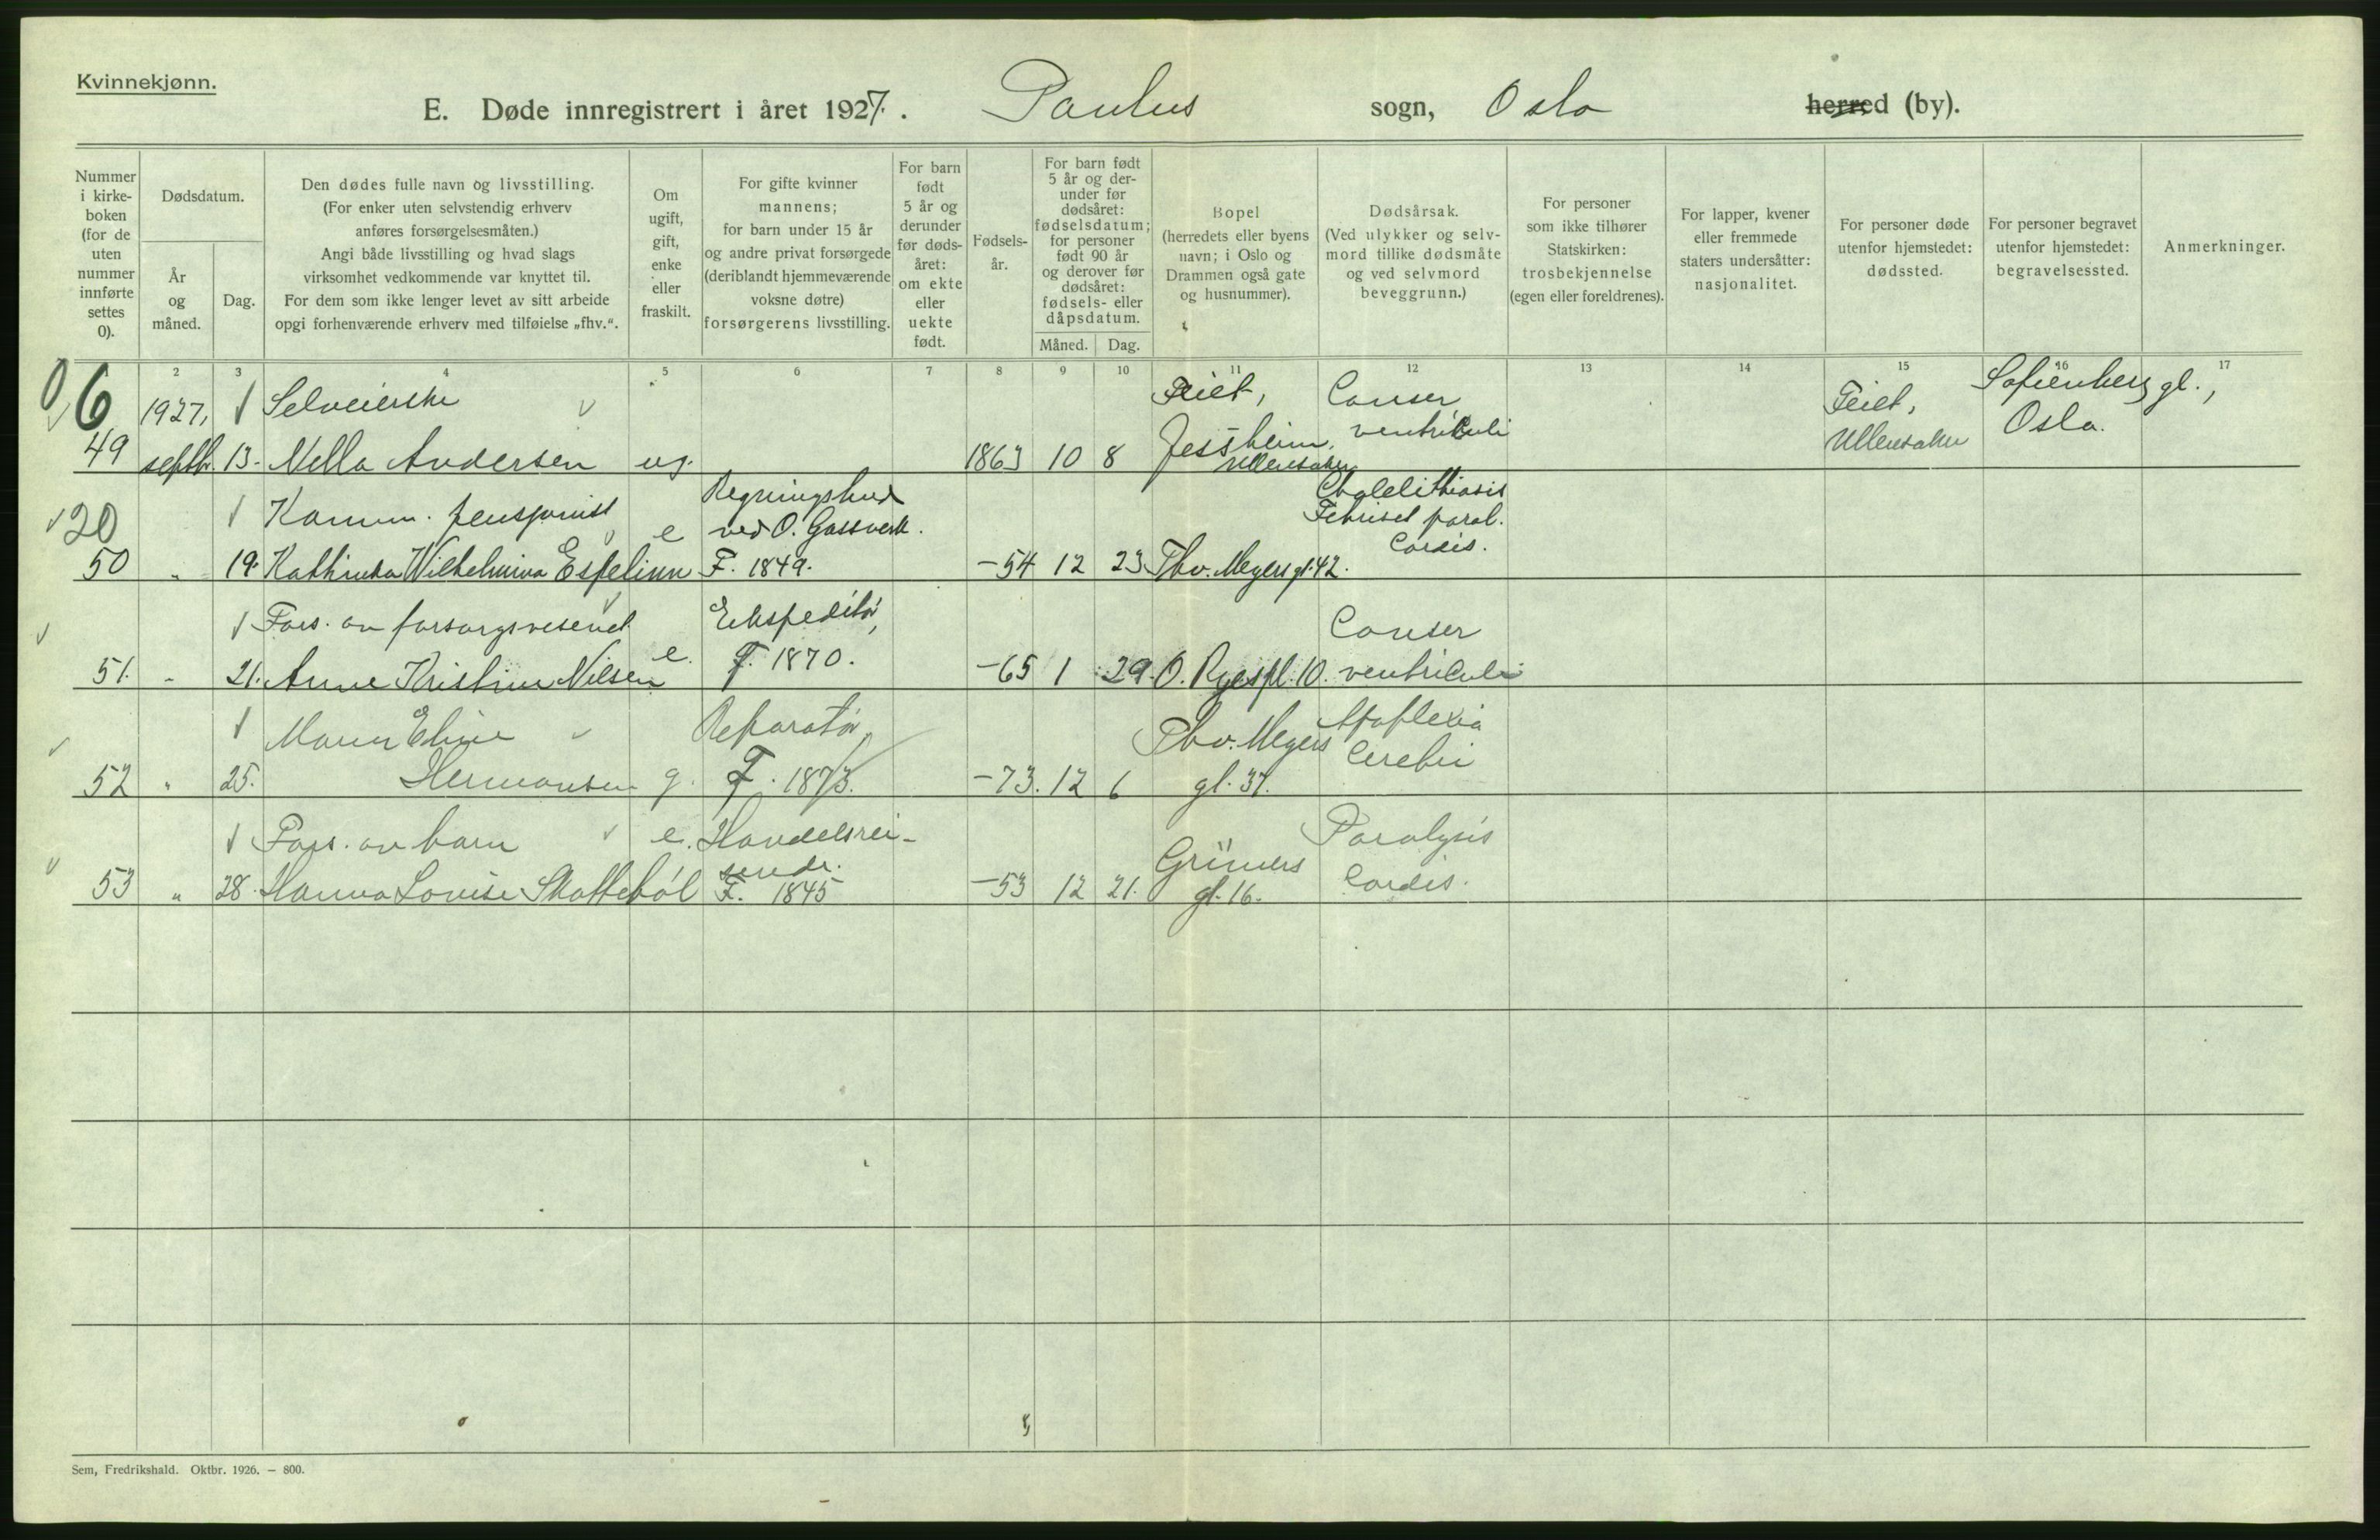 Kvinnekjønn.
E. Døde innregistrert i året 1927. Paulus sogn, Oslo herred (by).
Nummer i kirke- boken (for de uten nummer innførte settes 0).
Dødsdatum.
År og måned.
Dag.
Den dødes fulle navn og livsstilling.
(For enker uten selvstendig erhverv
anføres forsørgelsesmåten.)
Angi både livsstilling og hvad slags
virksomhet vedkommende var knyttet til.
For dem som ikke lenger levet av sitt arbeide
opgi forhenværende erhverv med tilføielse „fhv.“.
Om ugift, gift, enke eller fraskilt.
For gifte kvinner
mannens;
for barn under 15 år
og andre privat forsørgede
(deriblandt hjemmeværende
voksne døtre)
forsørgerens livsstilling.
For barn født 5 år og derunder før døds- året: om ekte eller uekte født.
Fødsels- år.
For barn født
5 år og der-
under før
dødsåret:
fødselsdatum;
for personer
født 90 år
og derover før
dødsåret:
fødsels- eller
dåpsdatum.
Måned. Dag.
Bopel
(herredets eller byens
navn; i Oslo og
Drammen også gate
og husnummer).
Dødsårsak.
(Ved ulykker og selv-
mord tillike dødsmåte
og ved selvmord
beveggrunn.)
For personer
som ikke tilhører
Statskirken:
trosbekjennelse
(egen eller foreldrenes).
For lapper, kvener
eller fremmede
staters undersåtter:
nasjonalitet.
For personer døde
utenfor hjemstedet:
dødssted.
For personer begravet
utenfor hjemstedet:
begravelsessted.
Anmerkninger.
2 3 4 5 6 7 8 9 10 11 12 13 14 15 16 17
0 6 1927, Selveierske Teiet, Canser Teiet, Sofienberg gl.,
49 septb. 13. Nella Andersen ug. 1863 10 8 Jessheim, Ullensaker ventriculi Ullensaker Oslo.
20 Komm. pensjonist e Regningsbud Cholelithiasis
ved O. Gassverk. Febrisel paral.
50 " 19. Kathinka Wilhelmina Espelinn F. 1849. -54 12 23 Thv. Meyers gt. 42. Cordis.
Fors. av forsorgsvesenet Ekspeditør, Canser
51. " 21. Anne Kristine Nilsen e. F. 1870. -65 1 29. O. Ryes pl. 10. ventriculi
Maren Eline Reparatør, Thv. Meyers Apoplexia
52 " 25. Hermansen g. F. 1873. -73. 12 6 gt. 37. Cerebri
Fors. av barn e. Handelsrei- Grüners Paralysis
sende.
53 " 28. Hanna Lovise Skattebøl F. 1845 -53 12 21. gt. 16. Cordis.
Sem, Fredrikshald. Oktbr. 1926. – 800.